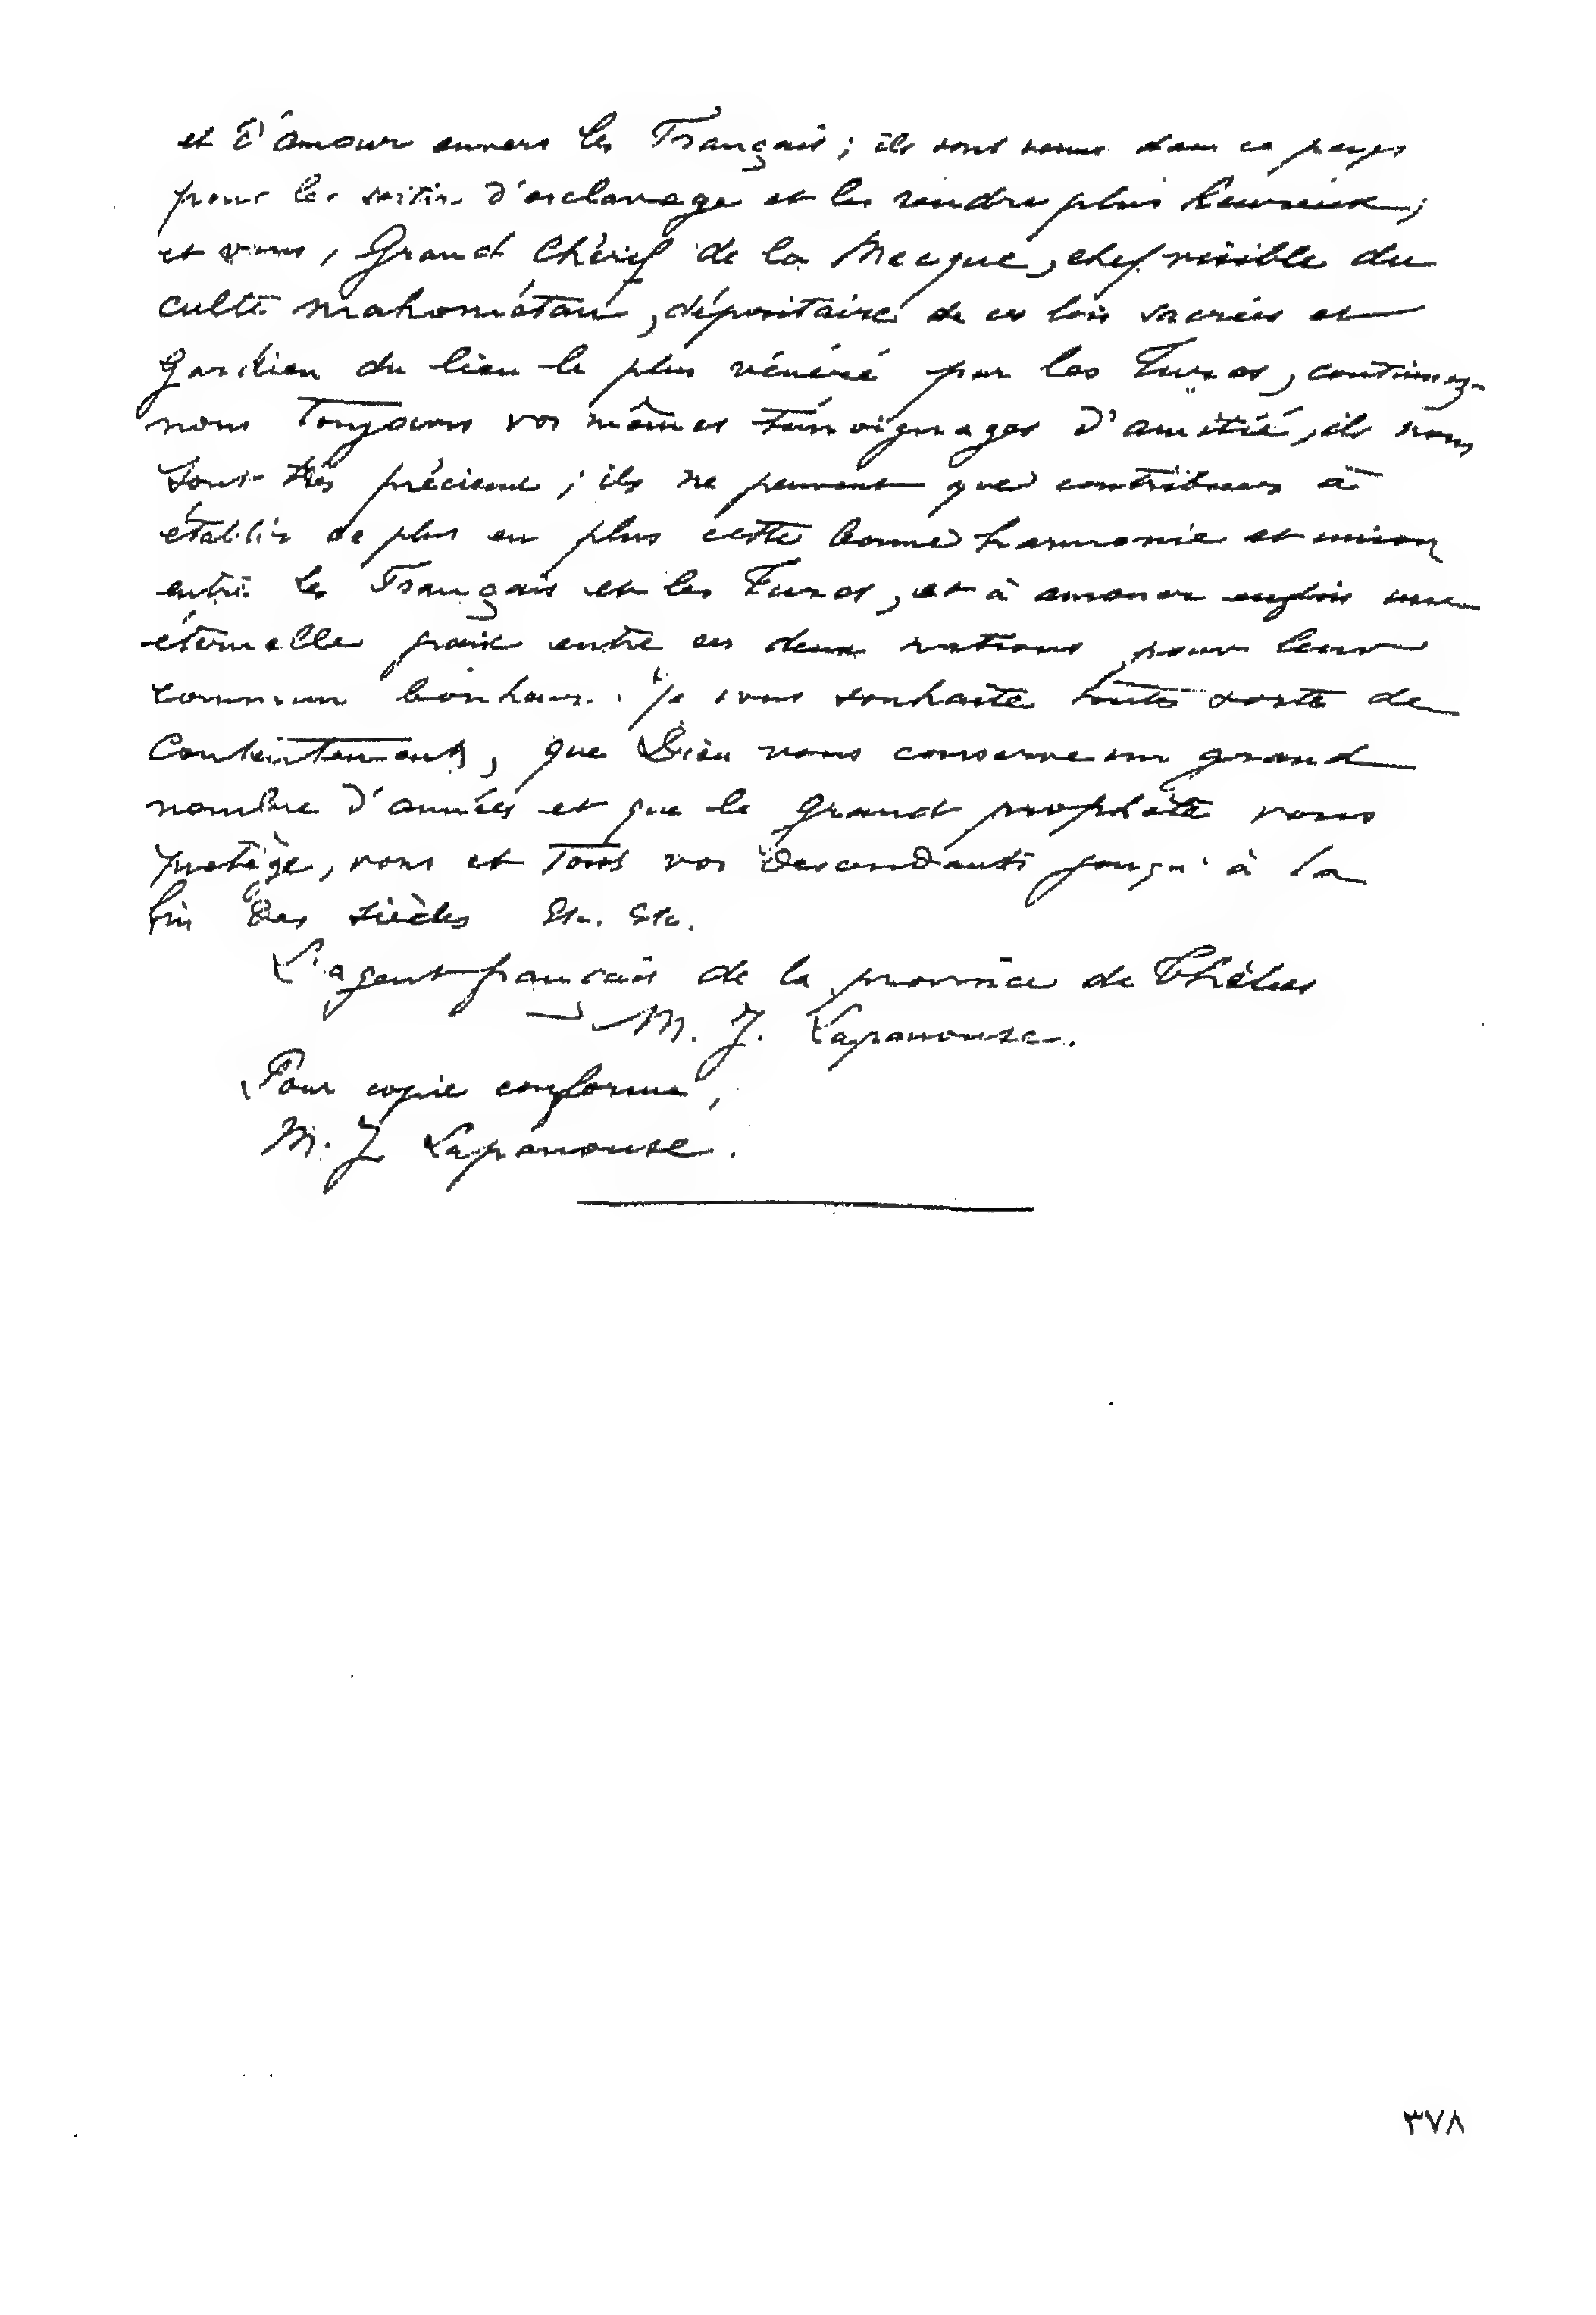 et d'amour envers les Français ; ils sont venus dans ce pays
pour les sortir d'esclavage et les rendre plus heureux ;
et vous, Grand Chérif de la Mecque, chef visible du
culte mahométan, dépositaire de ces lois sacrées et
gardien du lieu le plus vénéré par les Turcs, continuez-
nous toujours vos mêmes témoignages d'amitié, ils nous
sont très précieux ; ils ne peuvent que contribuer à
établir de plus en plus cette bonne harmonie et union
entre les Français et les Turcs, et à amener enfin une
éternelle paix entre ces deux nations pour leur
commun bonheur. Je vous souhaite toute sorte de
contentements, que Dieu vous conserve un grand
nombre d'années et que le grand prophète vous
protège, vous et tous vos descendants jusqu'à la
fin des siècles etc. etc.
L'agent français de la province de Thèbes
M. J. Lapanouse.
Pour copie conforme,
M. J Lapanouse.
٣٧٨